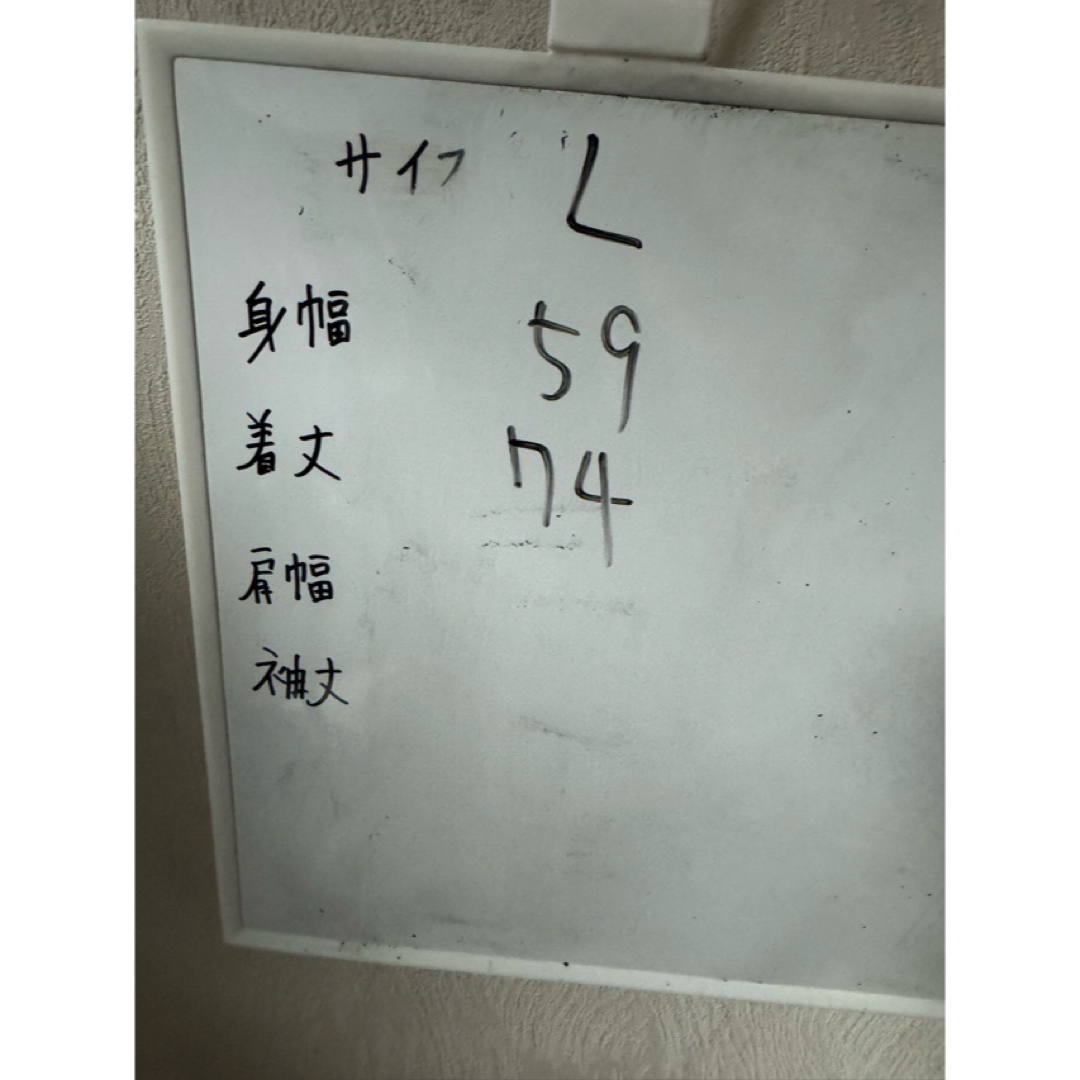 サイズ L
身幅 59
着丈 74
肩幅
袖丈